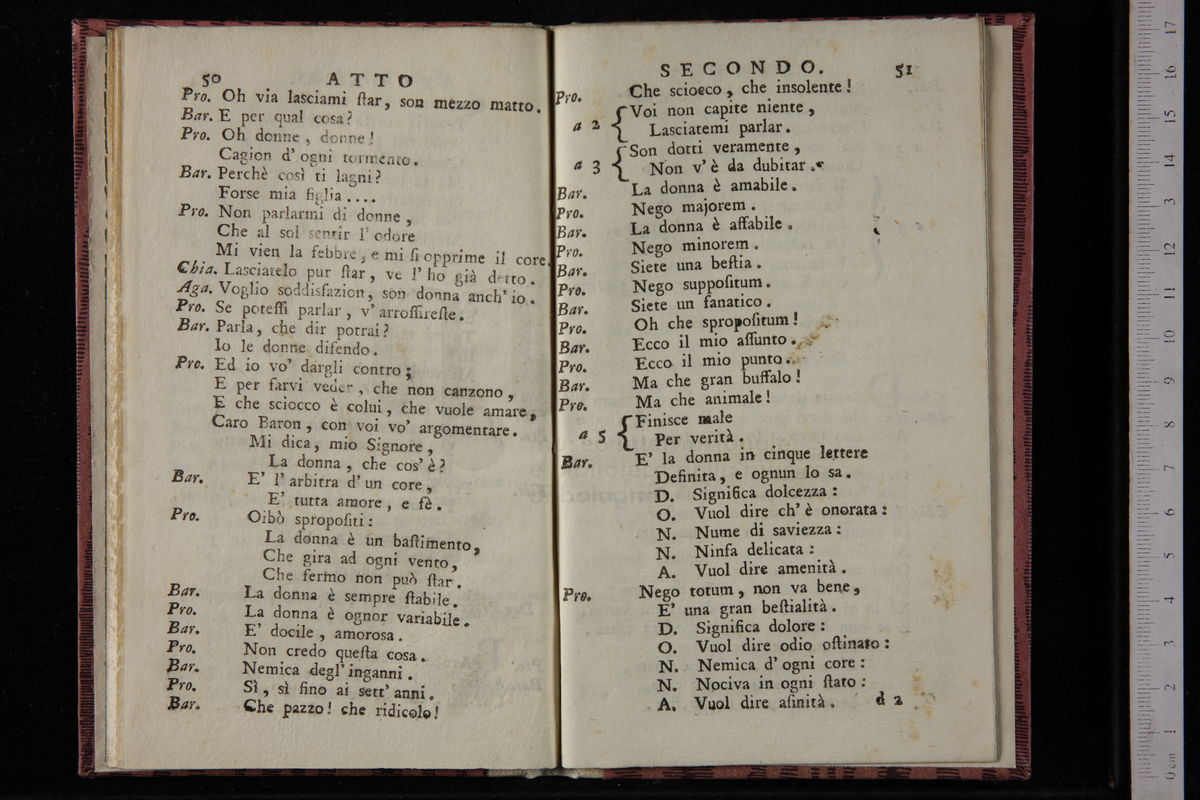 50 ATTO
Pro. Oh via lasciami ſtar, son mezzo matto.
Bar. E per qual cosa?
Pro. Oh donne, donne!
Cagion d' ogni tormento.
Bar. Perchè così ti lagni?
Forse mia figlia....
Pro. Non parlarmi di donne,
Che al sol sentir l' odore
Mi vien la febbre, e mi ſi opprime il core.
Chia. Lasciatelo pur ſtar, ve l' ho già detto.
Aga. Voglio soddisfazion, son donna anch' io.
Pro. Se poteſſi parlar, v' arroſſireſte.
Bar. Parla, che dir potrai?
Io le donne difendo.
Pro. Ed io vo' dargli contro;
E per farvi veder, che non canzono,
E che sciocco è colui, che vuole amare,
Caro Baron, con voi vo' argomentare.
Mi dica, mio Signore,
La donna, che cos' è?
Bar. E' l' arbitra d' un core,
E' tutta amore, e fè.
Pro. Oibò spropoſiti:
La donna è un baſtimento,
Che gira ad ogni vento,
Che fermo non può ſtar.
Bar. La donna è sempre ſtabile.
Pro. La donna è ognor variabile.
Bar. E' docile, amorosa.
Pro. Non credo queſta cosa.
Bar. Nemica degl' inganni.
Pro. Sì, sì fino ai sett' anni.
Bar. Che pazzo! che ridicolo!
SECONDO. 51
Pro. Che sciocco, che insolente!
a 2 { Voi non capite niente,
Lasciatemi parlar.
a 3 { Son dotti veramente,
Non v' è da dubitar.
Bar. La donna è amabile.
Pro. Nego majorem.
Bar. La donna è affabile.
Pro. Nego minorem.
Bar. Siete una beſtia.
Pro. Nego suppoſitum.
Bar. Siete un fanatico.
Pro. Oh che spropoſitum!
Bar. Ecco il mio aſſunto.
Pro. Ecco il mio punto.
Bar. Ma che gran buffalo!
Pro. Ma che animale!
a 5 { Finisce male
Per verità.
Bar. E' la donna in cinque lettere
Definita, e ognun lo sa.
D. Significa dolcezza:
O. Vuol dire ch' è onorata:
N. Nume di saviezza:
N. Ninfa delicata:
A. Vuol dire amenità.
Pro. Nego totum, non va bene,
E' una gran beſtialità.
D. Significa dolore:
O. Vuol dire odio oſtinato:
N. Nemica d' ogni core:
N. Nociva in ogni ſtato:
A. Vuol dire aſinità. d 2
0 cm 1 2 3 4 5 6 7 8 9 10 11 12 3 14 15 16 17